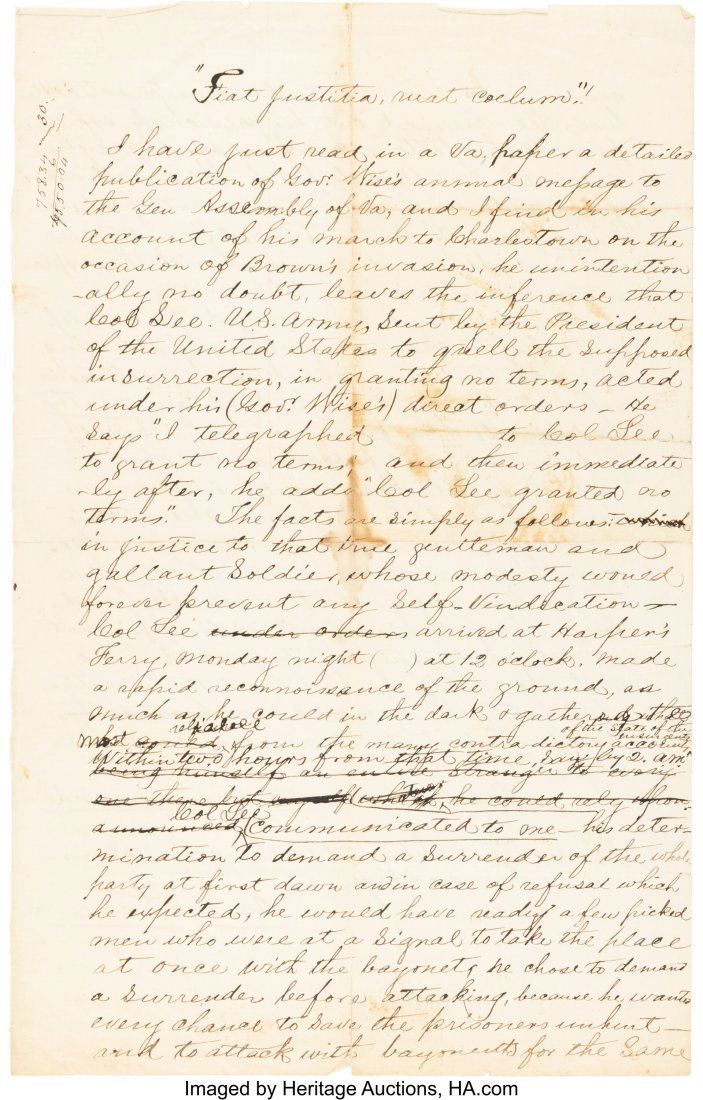 "Fiat justitia, ruat coelum."!
I have just read in a Va, paper a detailed
publication of Govr. Wise's annual message to
the Gen Assembly of Va, and I find in his
account of his march to Charlestown on the
occasion of Brown's invasion, he unintention
-ally no doubt, leaves the inference that
Col Lee. U.S. Army, sent by the President
of the United States to quell the supposed
insurrection, in granting no terms, acted
under his (Govr. Wise's) direct orders - He
says "I telegraphed to Col Lee
to grant no terms", and then immediate
-ly after, he adds "Col Lee granted no
terms." The facts are simply as follows: which
in justice to that true gentleman and
gallant Soldier, whose modesty would
forever prevent any Self-Vindication -
Col Lee under orders arrived at Harper's
Ferry, Monday night ( ) at 12 o'clock. made
a rapid reconnoissance of the ground, as
much as he could in the dark & gathered the
reliable of the State of the insurgents
most could, from the many contradictory accounts
Within two hours from that time, say by 2. am
being himself an entire stranger to every
one there but myself he could rely upon
Col Lee
announced, (communicated to me - his deter-
mination to demand a Surrender of the whole
party at first dawn and in case of refusal which
he expected, he would have ready a few picked
men who were at a signal to take the place
at once with the bayonet, he chose to demand
a Surrender before attacking, because he wanted
every chance to save the prisoners unhurt -
and to attack with bayonets for the same
758.34
30.
6
Imaged by Heritage Auctions, HA.com